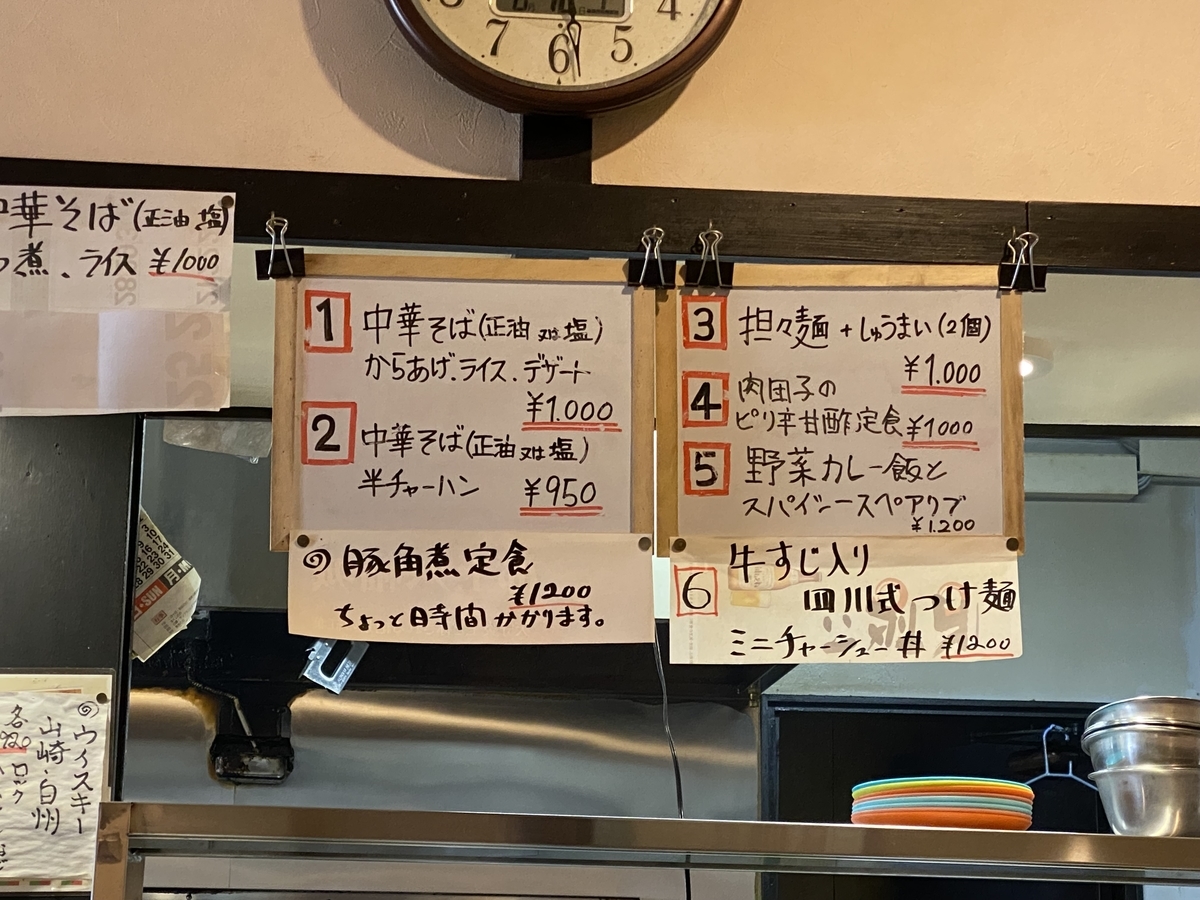 7 6 5 4
中華そば(正油 塩)
煮、ライス ¥1000
1 中華そば(正油 又は 塩)
からあげ.ライス.デザート
¥1.000
2 中華そば(正油 又は 塩)
半チャーハン ¥950
豚角煮定食
¥1200
ちょっと時間かかります。
3 担々麺 + しゅうまい(2個)
¥1.000
4 肉団子の
ピリ辛甘酢定食 ¥1000
5 野菜カレー飯と
スパイシースペアリブ
¥1.200
6 牛すじ入り
四川式つけ麺
ミニチャーシュー丼 ¥1200
ウイスキー
山崎・白州
各920
ロック